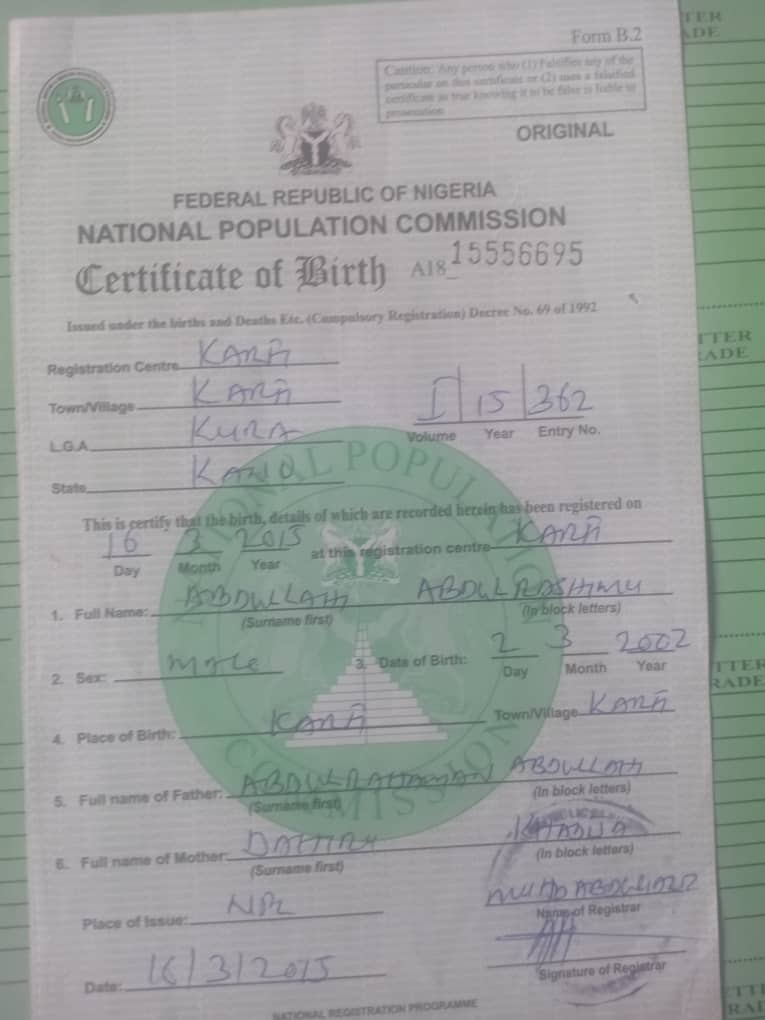 Form B.2
Caution: Any person who (1) Falsifies any of the
particular on this certificate or (2) uses a falsified
certificate as true knowing it to be false is liable to
prosecution
ORIGINAL
FEDERAL REPUBLIC OF NIGERIA
NATIONAL POPULATION COMMISSION
Certificate of Birth A18 15556695
Issued under the births and Deaths Etc. (Compulsory Registration) Decree No. 69 of 1992
Registration Centre KARA
Town/Village KARA
L.G.A. KURA
State KANO
I 15 362
Volume Year Entry No.
This is certify that the birth, details of which are recorded herein has been registered on
16 3 2015 at this registration centre KARA
Day Month Year
1. Full Name: ABDULLAHI
(Surname first) (In block letters)
2. Sex: Male 3. Date of Birth: 2 3 2002
Day Month Year
4. Place of Birth: KARA Town/Village KARA
5. Full name of Father: ABDULRAHAMAN ABDULLAHI
(Surname first) (In block letters)
6. Full name of Mother:
(Surname first) (In block letters)
Place of Issue: NPC
Name of Registrar
Date: 16/3/2015
Signature of Registrar
NATIONAL REGISTRATION PROGRAMME
NATIONAL POPULATION
COMMISSION